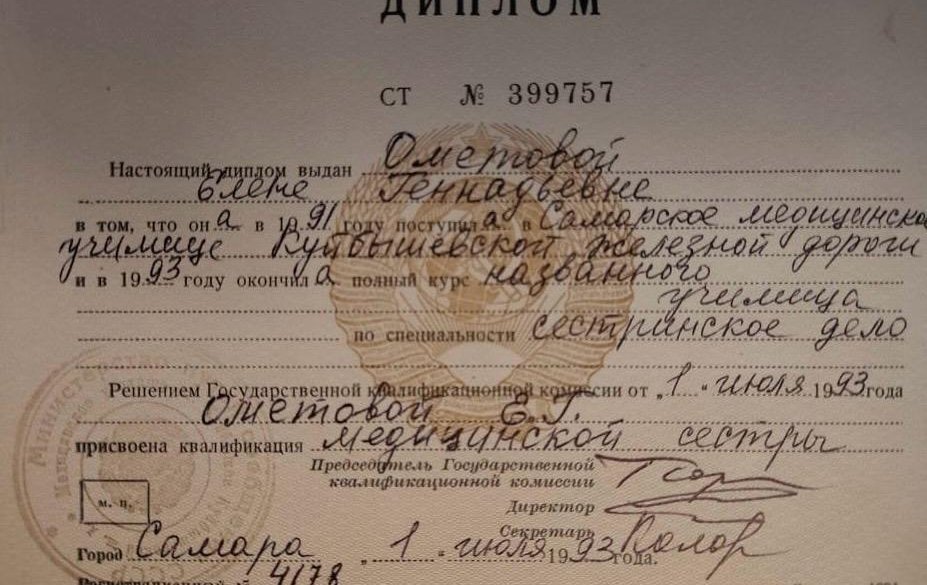 ДИПЛОМ
СТ № 399757
Настоящий диплом выдан Ометовой
Елене Геннадьевне
в том, что она в 1991 году поступила в Самарское медицинское
училище Куйбышевской железной дороги
и в 1993 году окончила полный курс названного
училища
по специальности сестринское дело
Решением Государственной квалификационной комиссии от „1" июля 1993 года
Ометовой Е.Г.
присвоена квалификация медицинской сестры
Председатель Государственной
квалификационной комиссии
Директор
Секретарь
м. п.
Город Самара „1" июля 1993 года.
Регистрационный № 4178
Министерство